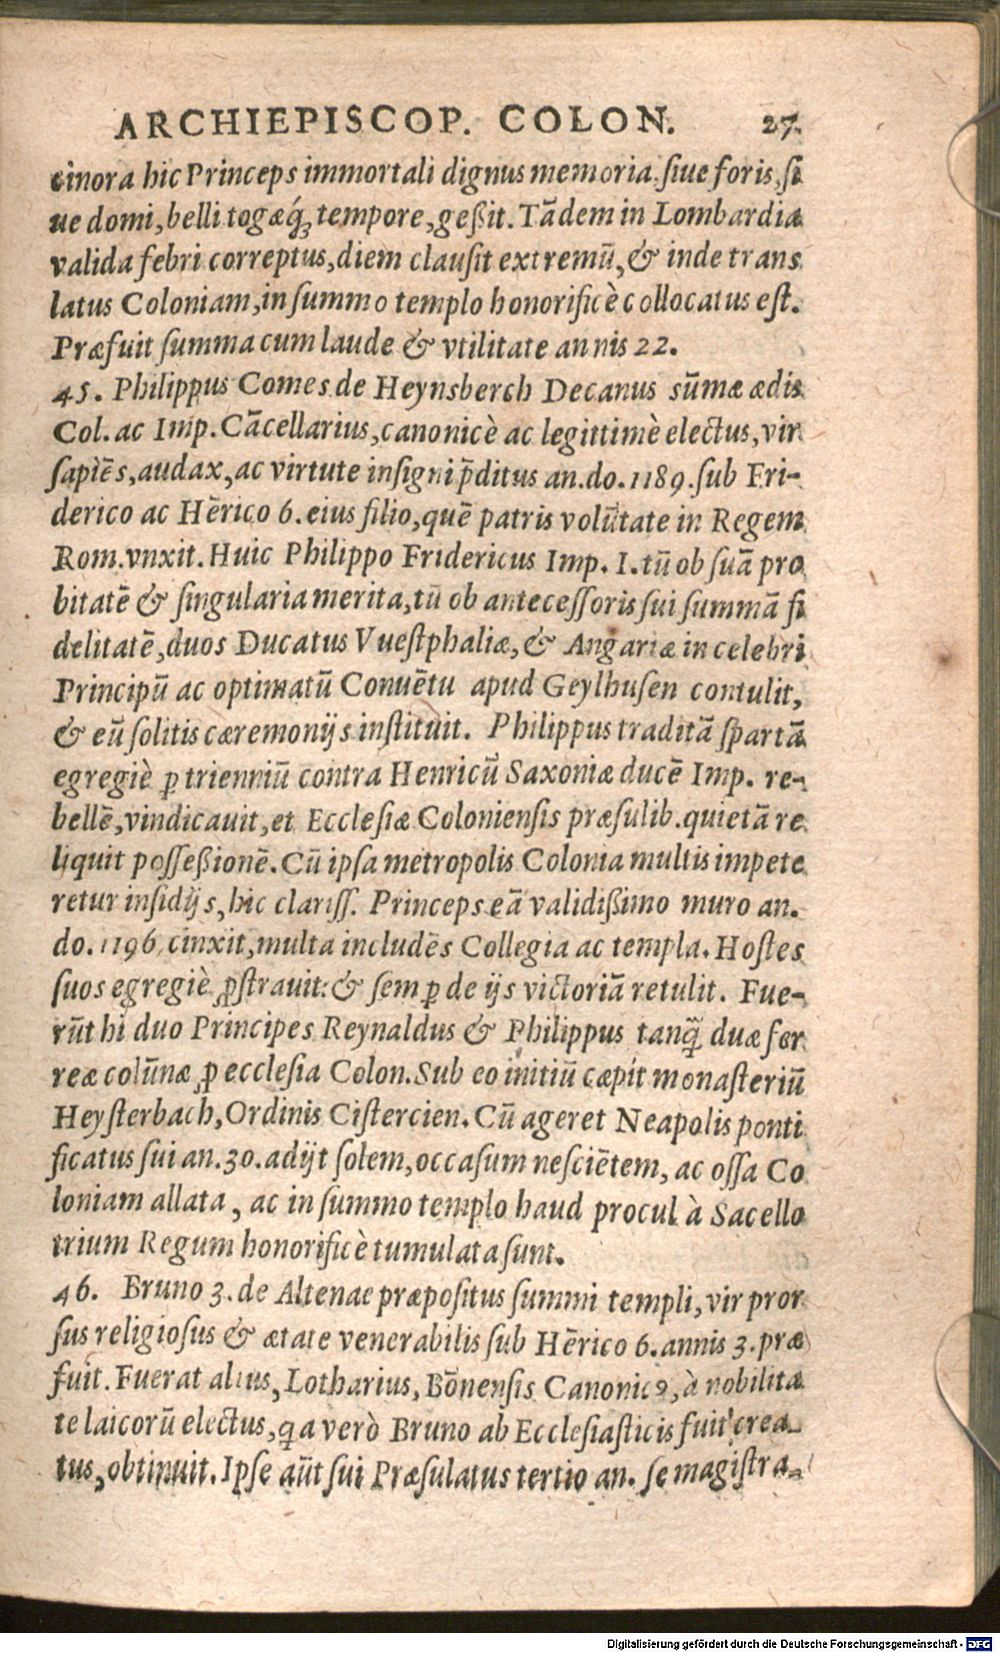 ARCHIEPISCOP. COLON. 27.
cinora hic Princeps immortali dignus memoria.siue foris, si
ue domi, belli togæq́; tempore, geßit. Tādem in Lombardia
valida febri correptus, diem clausit extremū, & inde trans
latus Coloniam, in summo templo honorificè collocatus est.
Præfuit summa cum laude & vtilitate annis 22.
45. Philippus Comes de Heynsberch Decanus sūmæ ædis
Col. ac Imp. Cācellarius, canonicè ac legittimè electus, vir
sapiēs, audax, ac virtute insigni p̄ditus an. do. 1189. sub Fri-
derico ac Hērico 6. eius filio, quē patris volūtate in Regem
Rom. vnxit. Huic Philippo Fridericus Imp. I. tū ob suā pro
bitatē & singularia merita, tū ob antecessoris sui summā fi
delitatē, duos Ducatus Vuestphaliæ, & Angariæ in celebri
Principū ac optimatū Conuētu apud Geylhusen contulit,
& eū solitis cæremonijs instituit. Philippus traditā spartā
egregiè ꝑ trienniū contra Henricū Saxoniæ ducē Imp. re-
bellē, vindicauit, et Ecclesiæ Coloniensis præsulib. quietā re
liquit posseßionē. Cū ipsa metropolis Colonia multis impete
retur insidijs, hic clariss. Princeps eā validißimo muro an.
do. 1196 cinxit, multa includēs Collegia ac templa. Hostes
suos egregiè ꝓstrauit: & semꝑ de ijs victoriā retulit. Fue-
rūt hi duo Principes Reynaldus & Philippus tanq̄ duæ fer
reæ colūnæ ꝓ ecclesia Colon. Sub eo initiū cæpit monasteriū
Heysterbach, Ordinis Cistercien. Cū ageret Neapolis ponti
ficatus sui an. 30. adijt solem, occasum nesciētem, ac ossa Co
loniam allata, ac in summo templo haud procul à Sacello
trium Regum honorificè tumulata sunt.
46. Bruno 3. de Altenae præpositus summi templi, vir pror
sus religiosus & ætate venerabilis sub Hērico 6. annis 3. præ
fuit. Fuerat alius, Lotharius, Bōnensis Canonicꝰ, à nobilita
te laicorū electus, q̄a verò Bruno ab Ecclesiasticis fuit crea-
tus, obtinuit. Ipse aūt sui Præsulatus tertio an. se magistra-
Digitalisierung gefördert durch die Deutsche Forschungsgemeinschaft - DFG